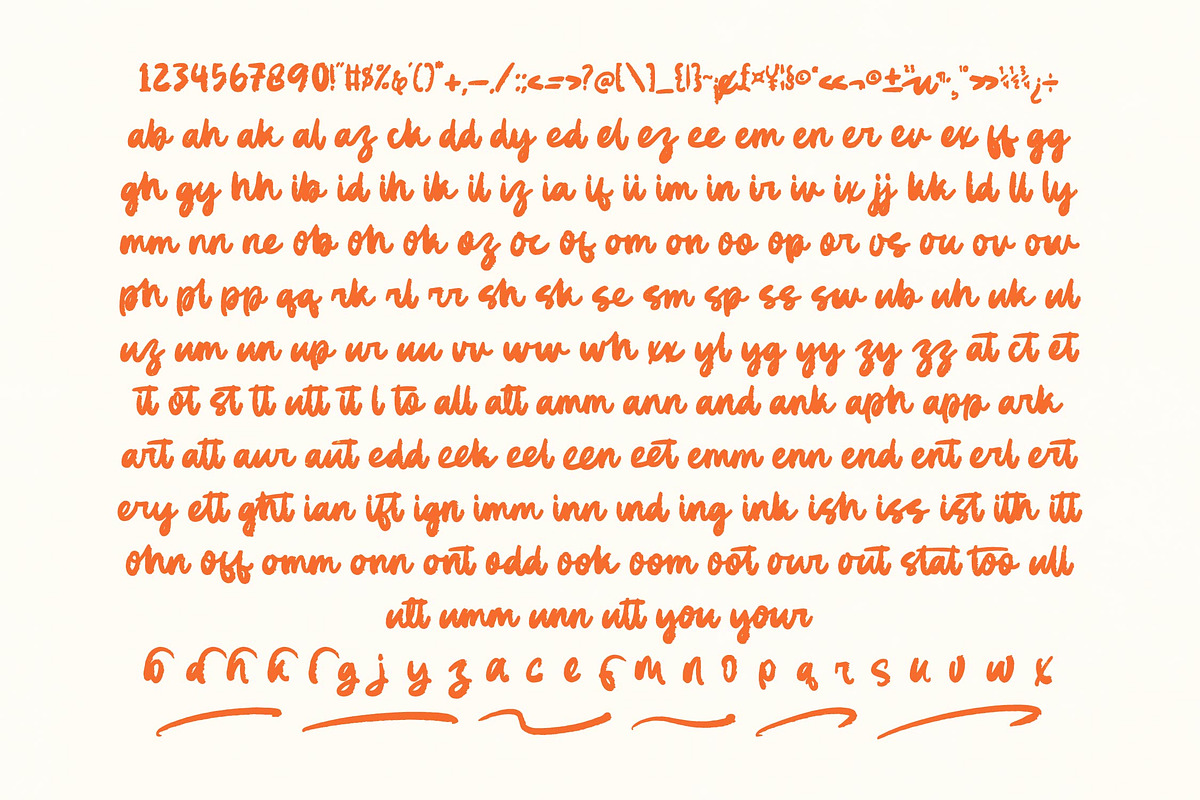 1234567890!"#$%&'()*+,-./:;<=>?@[\]_{|}~¡¢£¤¥¦§©"«¬©±²³µ·¸¹º»¼½¾¿÷
ab ah ak al az ck dd dy ed el ez ee em en er ev ex ff gg
gh gy hh ib id ih ik il iz ia if ii im in ir iv ix jj kk ld ll ly
mm nn ne ob oh ok oz oc of om on oo op or os ou ov ow
ph pl pp qq rk rl rr sh sk se sm sp ss sw ub uh uk ul
uz um un up ur uu vv ww wh xx yl yg yy zy zz at ct et
it ot st tt utt it l to all att amm ann and ank aph app ark
art att aur aut edd eek eel een eet emm enn end ent erl ert
ery ett ght ian ift ign imm inn ind ing ink ish iss ist ith itt
ohn off omm onn ont odd ook oom oot our out stat too ull
utt umm unn utt you your
b d h k l g j y z a c e f m n o p q r s u v w x